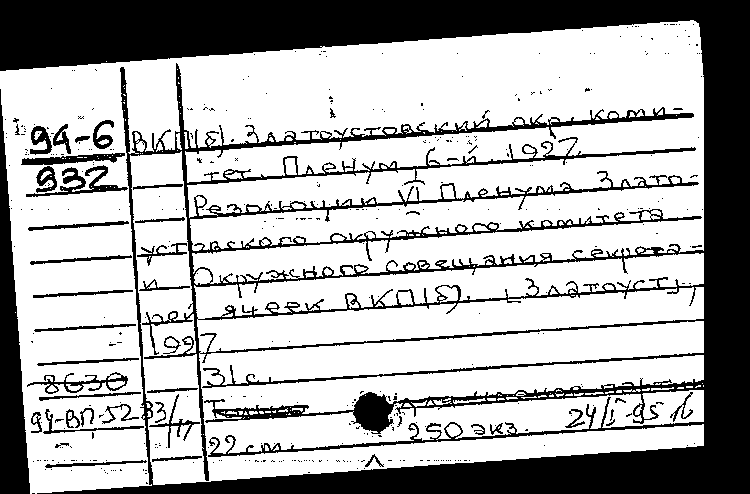 94-6
932
ВКП(б). Златоустовский окр. коми-
тет. Пленум, 6-й. 1927.
Резолюции VI Пленума Злато-
устовского окружного комитета
и Окружного совещания секрета-
рей ячеек ВКП(б). [Златоуст],
1927.
31 с.
8630
94-ВП-52 83/17 Только Для членов партии
22 см. 250 экз. 24/I-95